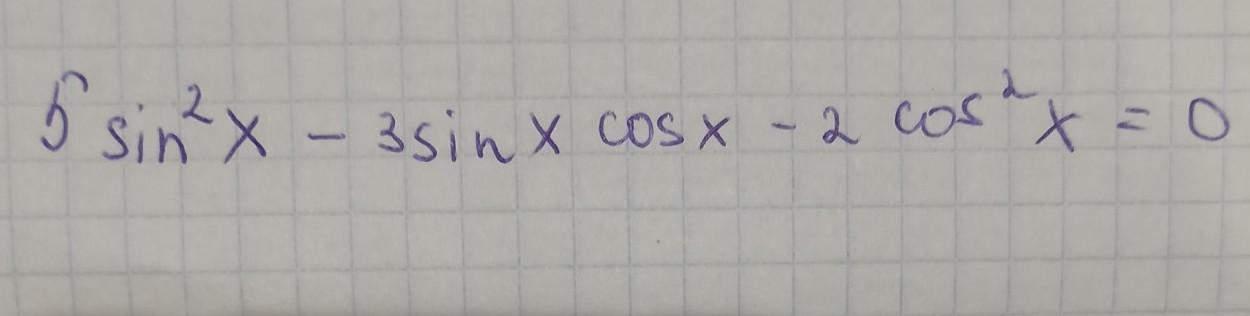 5 sin²x - 3 sin x cos x - 2 cos²x = 0